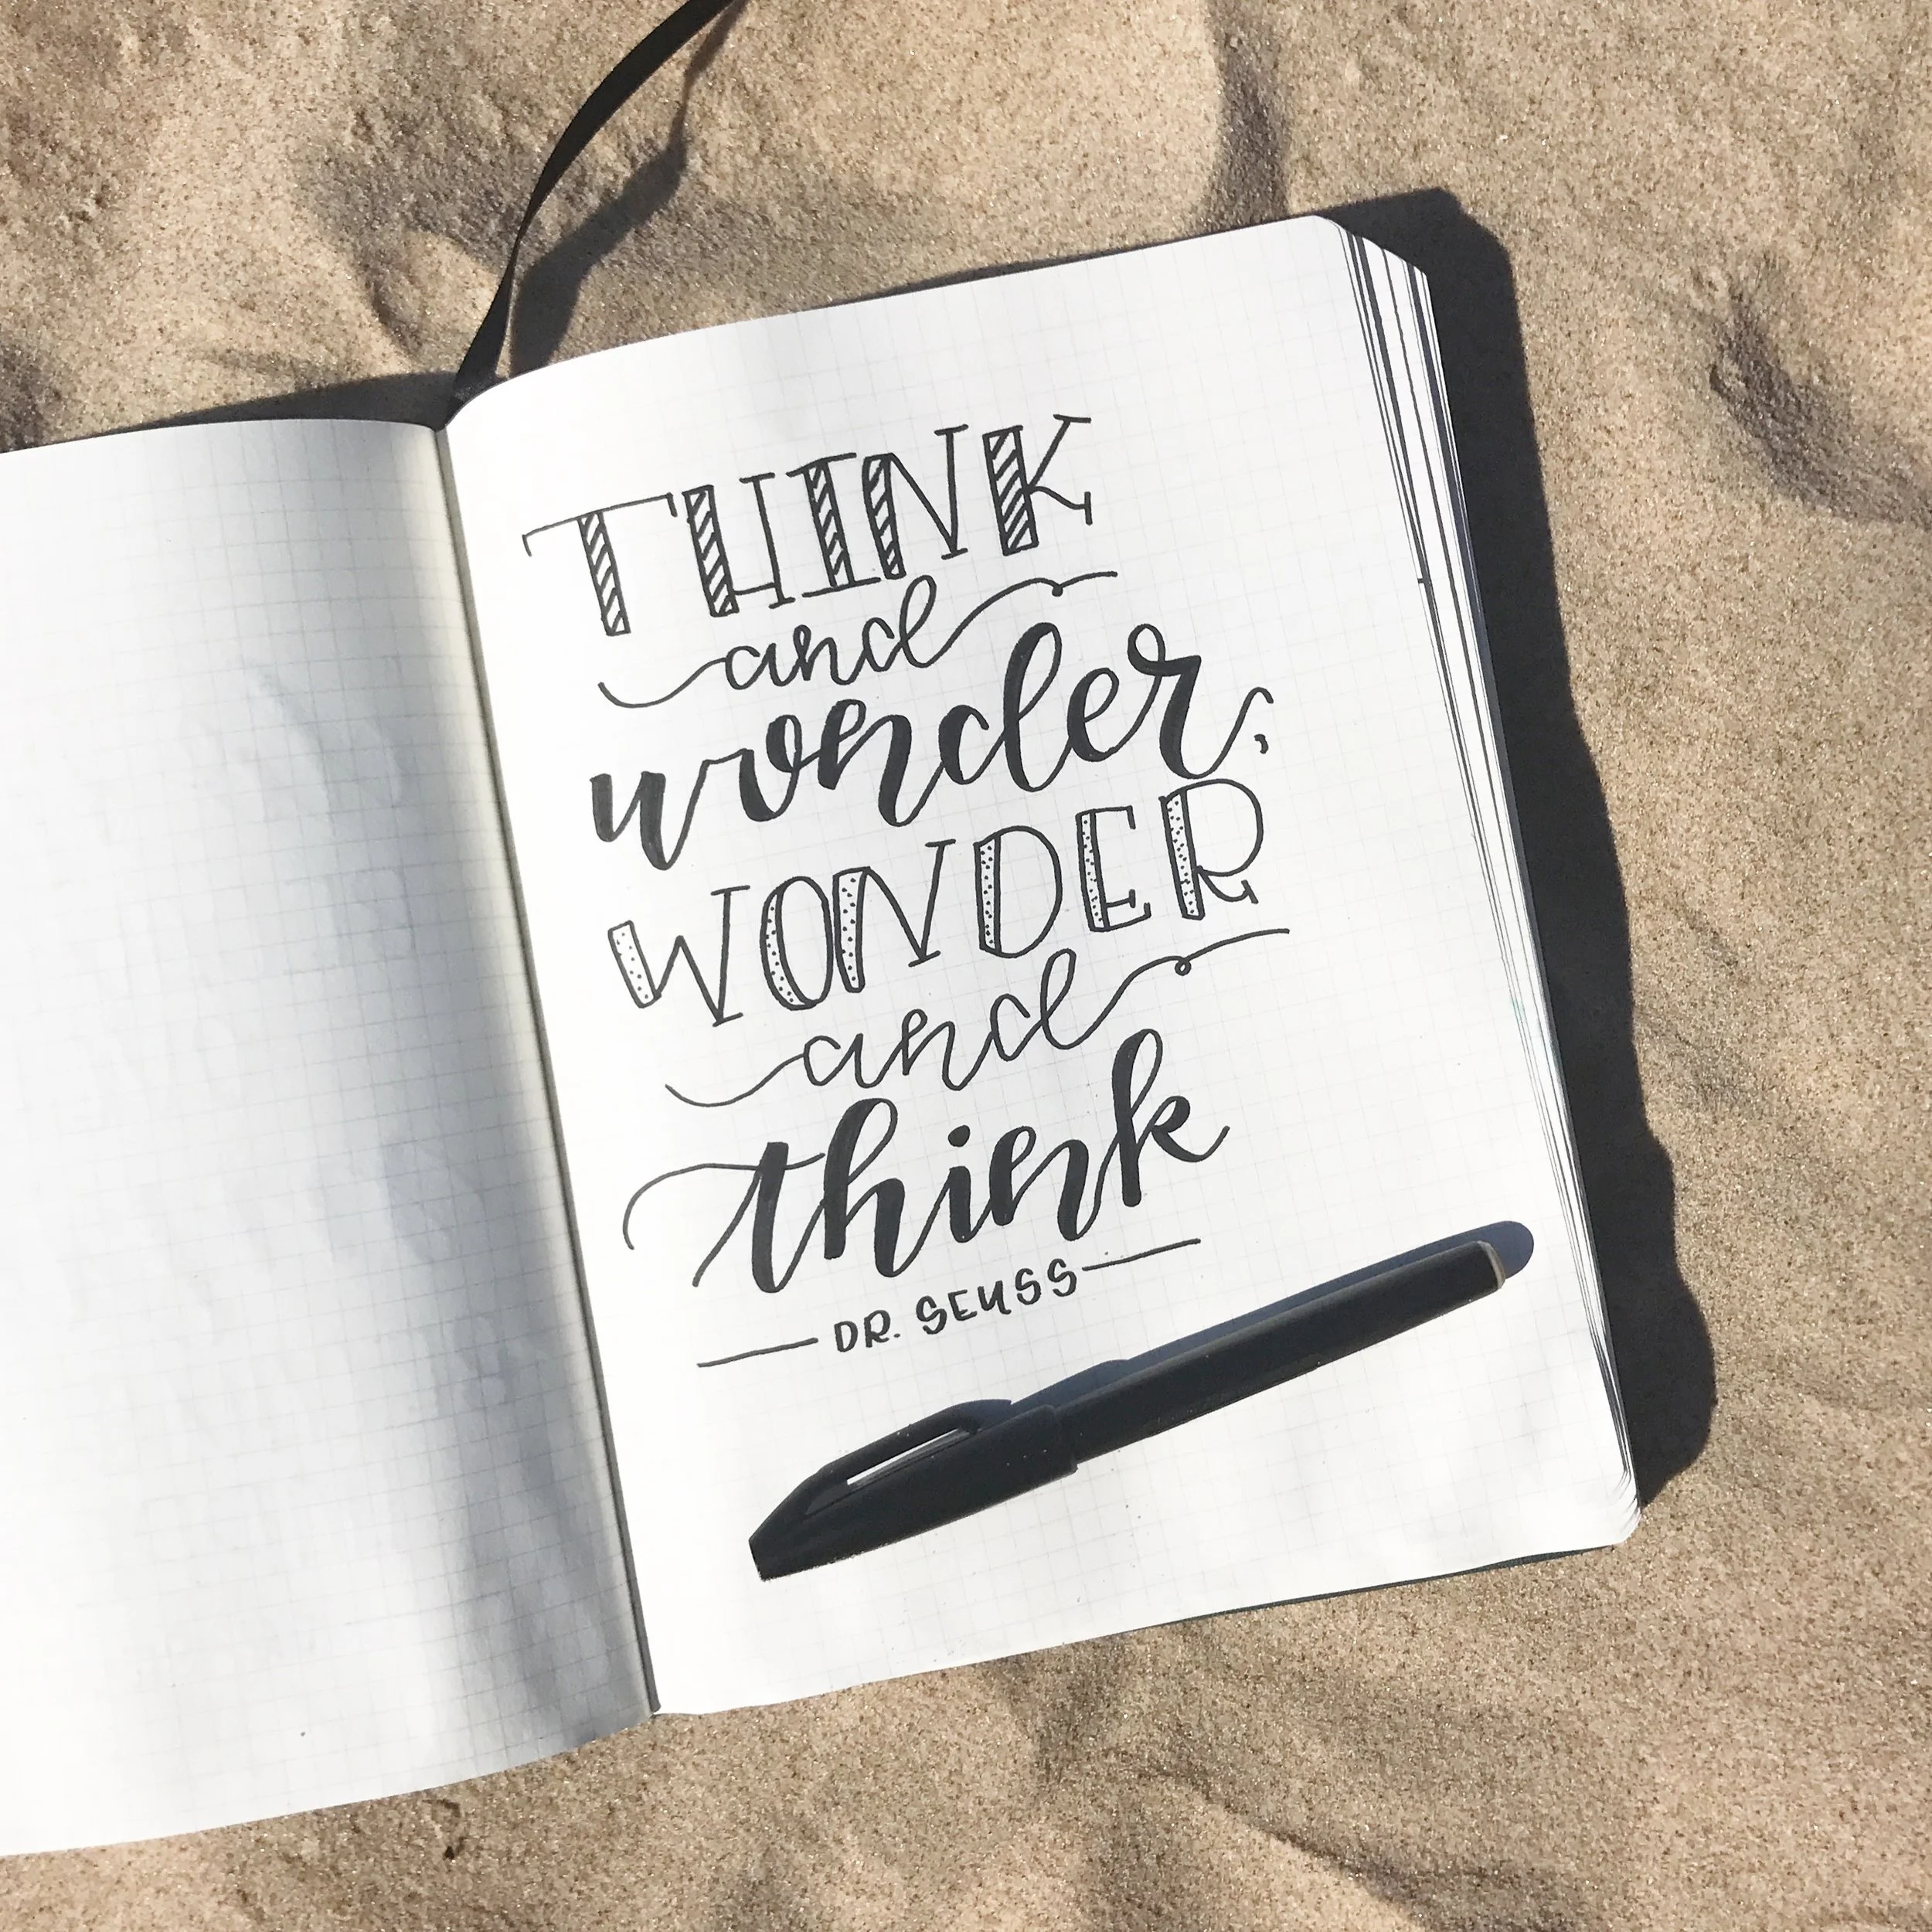 THINK
and
wonder,
WONDER
and
think
DR. SEUSS